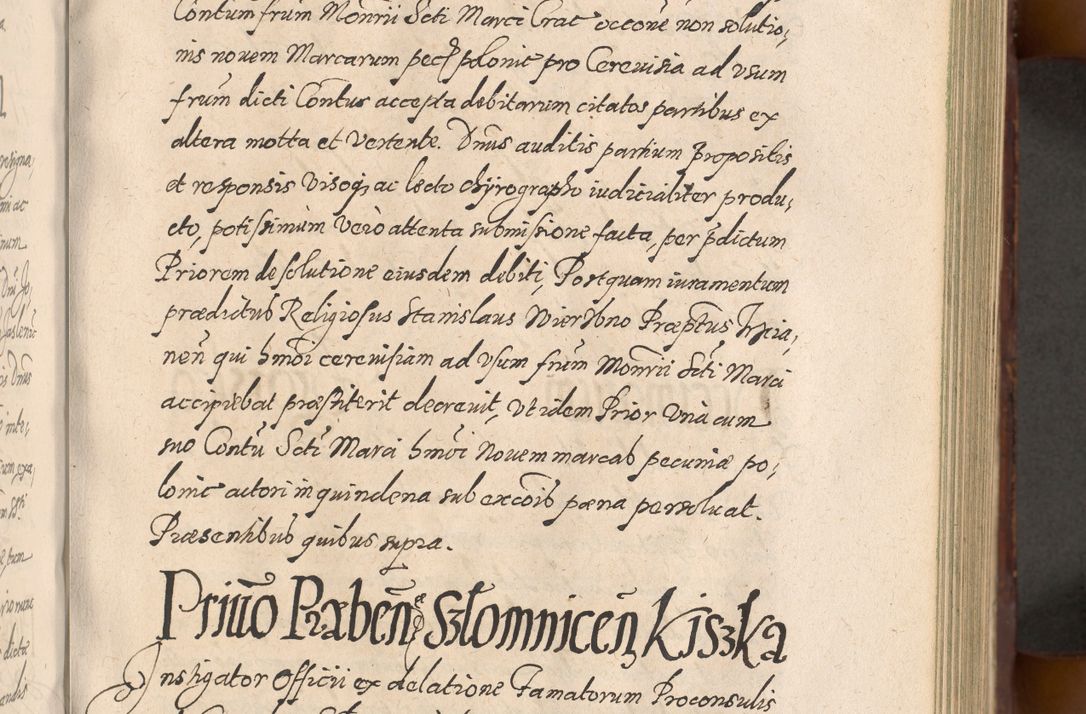 Contum frum Monrii Scti Marci Crac occone non solutio,
nis novem Marcarum pecu polonic pro Cerevisia ad usum
frum dicti Contus accepta debitarum citatos partibus ex
altera motta et vertente. Dnus auditis partium propositis
et responsis visoq ac lecto chyrographo iudicialiter produ,
cto, potissimum vero attenta submissione facta, per pdictum
Priorem de solutione eiusdem debiti, Postquam iuramentum
prædictus Religiosus Stanislaus Præptus
nen qui hmoi cerevisiam ad usum frum Monrii Scti Marci
accipiebat præstiterit decrevit, ut idem Prior una cum
suo Contu Scti Marci hmoi Novem marcas pecuniæ po,
lonic actori in quindena sub excois pæna persolvat.
Præsentibus quibus supra.
Priuo Præben Szłomnicen Kiszka
Instigator Officii ex delatione Famatorum Proconsulis